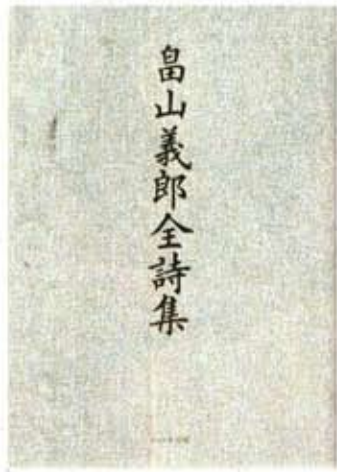 畠山義郎全詩集